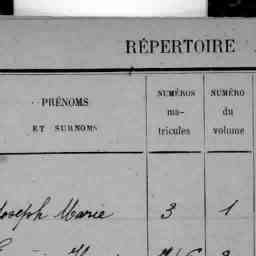 RÉPERTOIRE
PRÉNOMS
ET SURNOMS
NUMÉROS
ma-
tricules
NUMÉRO
du
volume
Joseph Marie 3 1